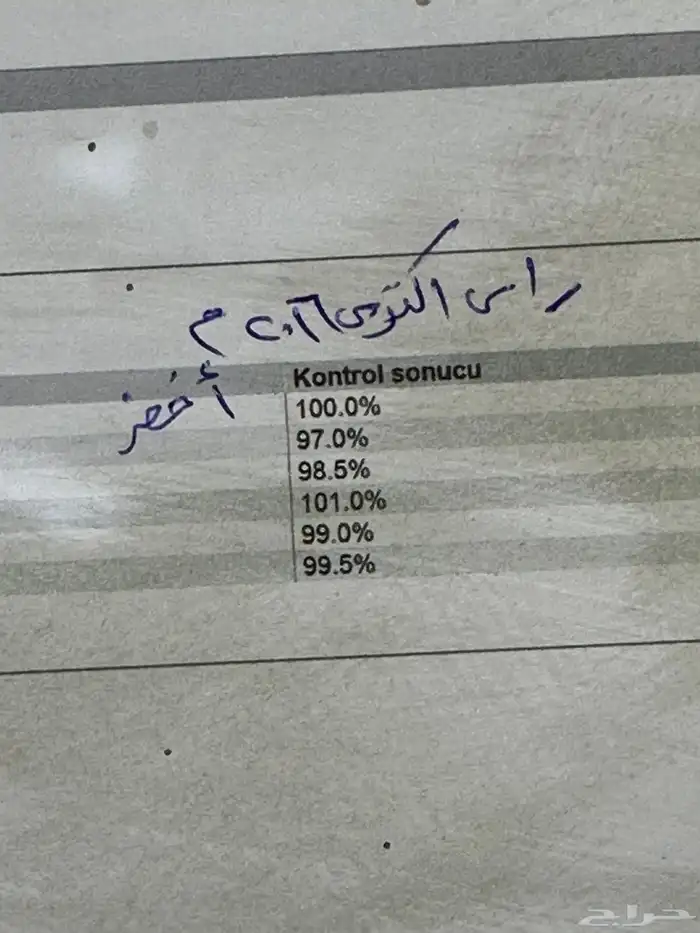 راس اكتروس ٢٠١٦ م
أخضر
Kontrol sonucu
100.0%
97.0%
98.5%
101.0%
99.0%
99.5%
حراج